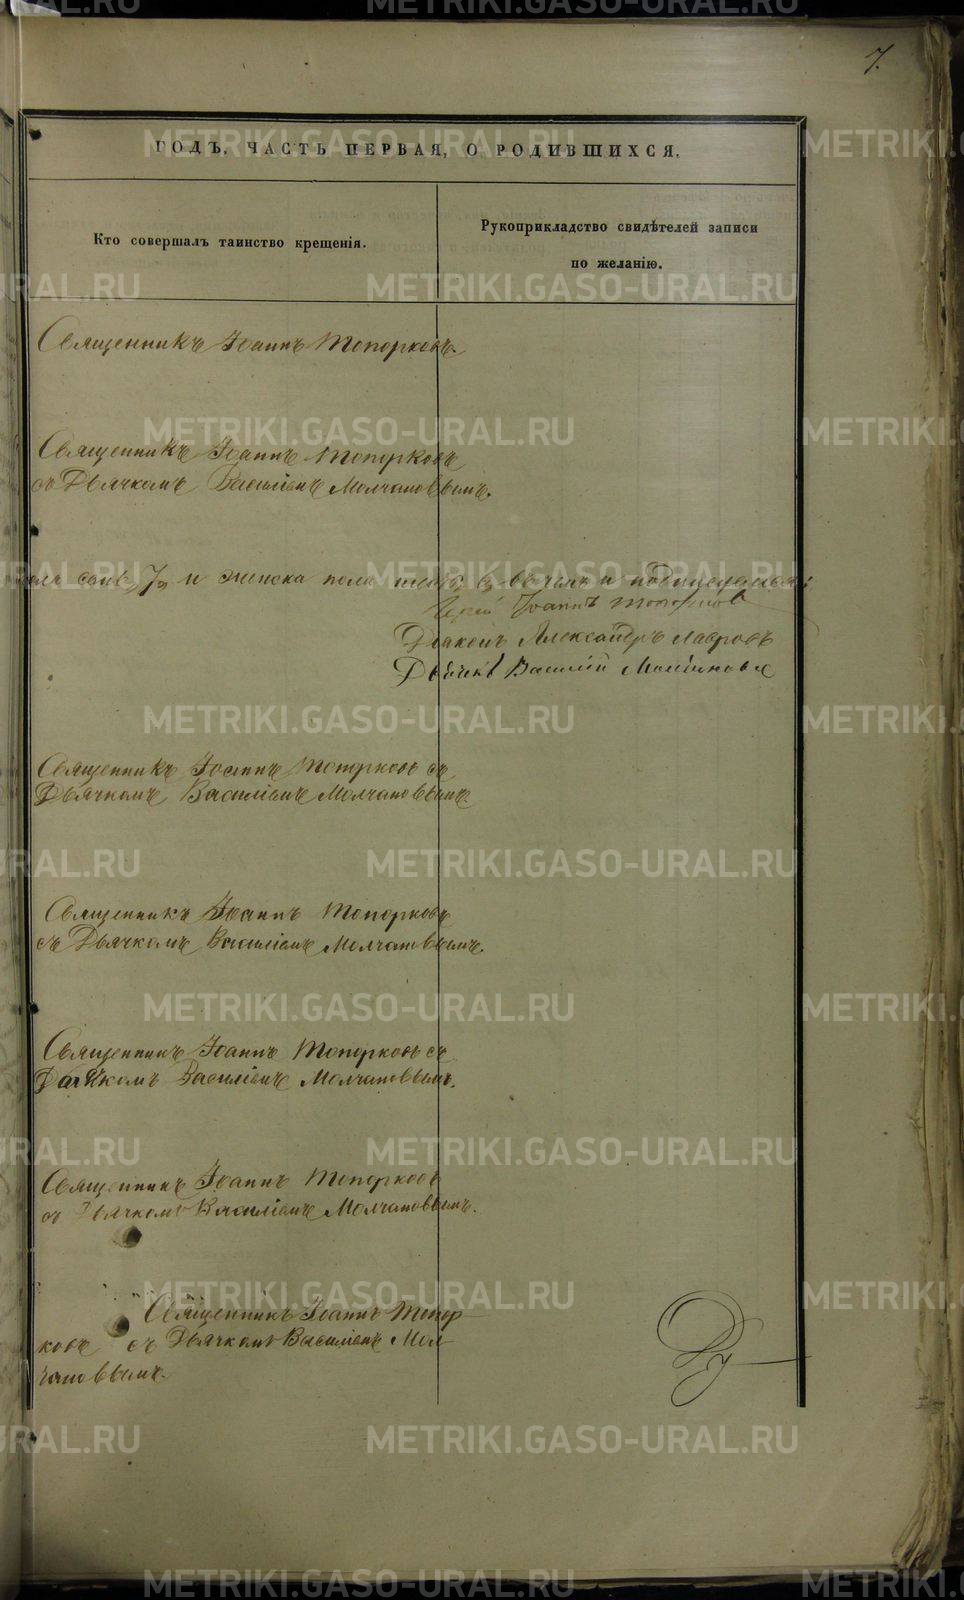 7.
ГОДЪ, ЧАСТЬ ПЕРВАЯ, О РОДИВШИХСЯ.
Кто совершалъ таинство крещенія.
Рукоприкладство свидѣтелей записи
по желанію.
Священникъ Іоаннъ Топорковъ.
Священникъ Іоаннъ Топорковъ
съ Дьячкомъ Василіемъ Молчановвымъ.
и женска пола подписуемся:
Іерей Іоаннъ Топорковъ
Діаконъ Александръ Лавровъ
Дьячекъ Василій Молчановъ
Священникъ Іоаннъ Топорковъ съ
Дьячкомъ Василіемъ Молчановвымъ.
Священникъ Іоаннъ Топорковъ
съ Дьячкомъ Василіемъ Молчановвымъ.
Священникъ Іоаннъ Топорковъ съ
Дьячкомъ Василіемъ Молчановвымъ.
Священникъ Іоаннъ Топорковъ
съ Дьячкомъ Василіемъ Молчановвымъ.
Священникъ Іоаннъ Топор
ковъ съ Дьячкомъ Василіемъ Мол
чановвымъ.
METRIKI.GASO-URAL.RU